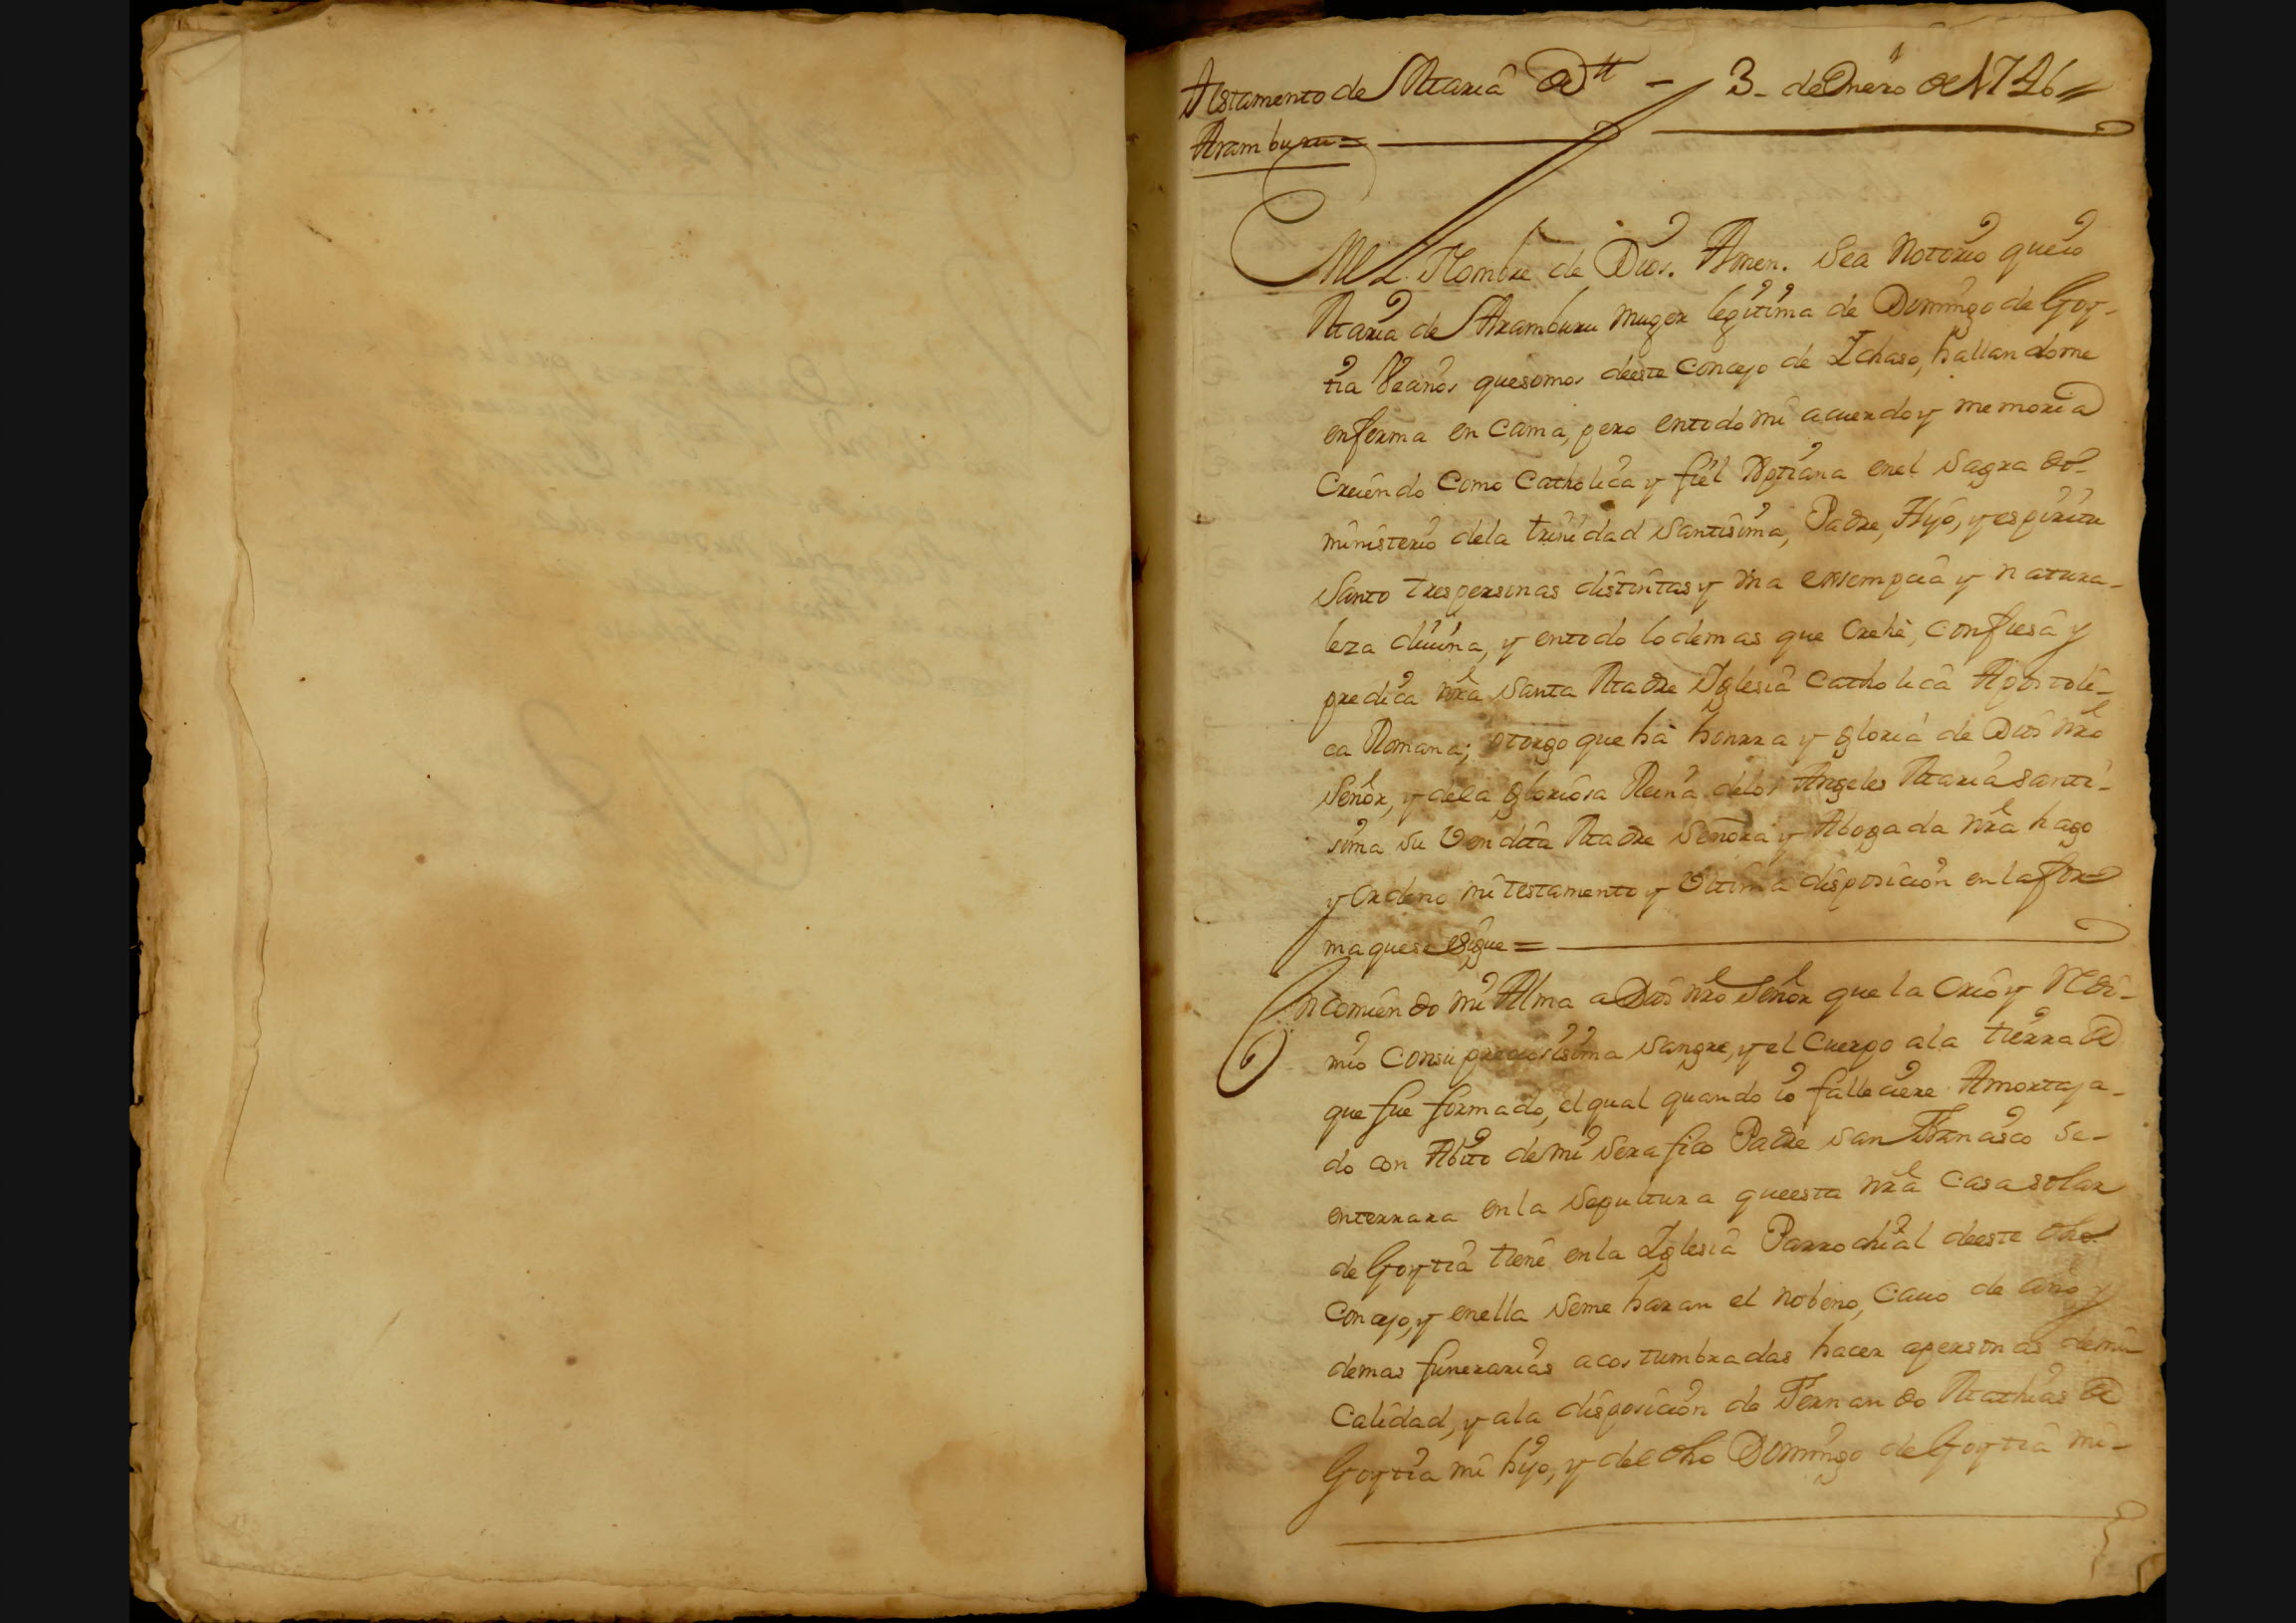 Testamento de Maria de — 3 de Enero de 1746
Aramburu =
En el Nombre de Dios. Amen. Sea Notorio que io
Maria de Aramburu Muger legitima de Domingo de Goy-
tia Vecinos que somos de este concejo de Ichaso, hallandome
enferma en cama, pero en todo mi acuerdo y memoria
Creiendo Como Catholica y fiel Xptiana en el sagrado
ministerio de la trinidad santisima, Padre, Hijo, y espiritu
Santo tres personas distintas y una essempcia y natura-
leza divina, y en todo lo demas que crehe, confiesa y
predica nra Santa Madre Iglesia catholica Apostoli-
ca Romana; otorgo que ha honrra y gloria de Dios nro
Señor, y de la gloriosa Reina de los Angeles Maria santi-
sima su Vendita Madre Señora y Abogada nra hago
y ordeno mi testamento y Ultima disposicion en la for-
ma que se sigue =
Encomiendo mi Alma a Dios nro Señor que la crio y redi-
mio con su preciosisima sangre, y el Cuerpo a la tierra de
que fue formado, el qual quando io falleciere Amortaja-
do con Abito de mi Serafico Padre san Francisco se-
enterrara en la sepultura que esta nra casa solar
de Goytia tiene en la Iglesia Parrochial de este dho
Concejo, y en ella se me haran el nobeno, cavo de año y
demas funerarias acostumbradas hacer a personas de mi
Calidad, y a la disposicion de Fernando Mathias de
Goytia mi hijo, y del dho Domingo de Goytia mi-